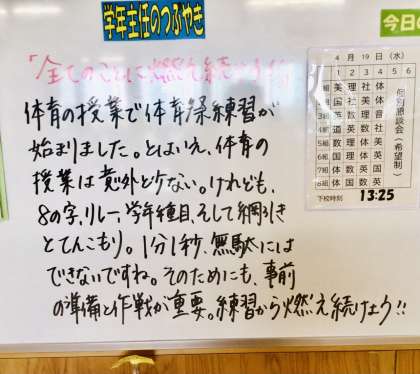 学年主任のつぶやき
今日の
「全てのことに燃え続ける
体育の授業で体育祭練習が
始まりました。とはいえ、体育の
授業は意外と少ない。けれども、
8の字、リレー、学年種目、そして綱引き
とてんこもり。1分1秒、無駄には
できないですね。そのためにも、事前
の準備と作戦が重要。練習から燃え続けよう!!
4月19日(水)
1 2 3 4 5 6
美理社体
国社理数
英数体音
道数英社
数英理国
国理数英
体社数英
体国数英
個別懇談会(希望制)
下校時刻 13:25